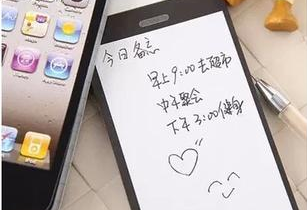 今日备忘
早上9:00去超市
中午聚会
下午3:00健身